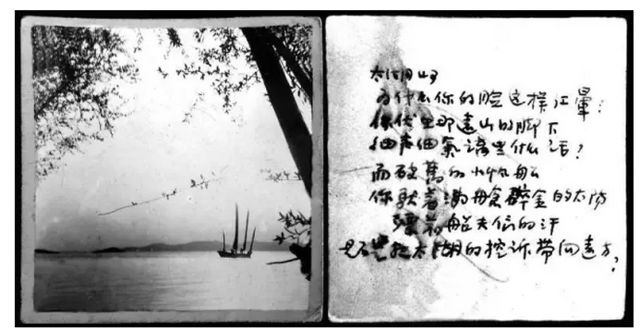 为什么你的脸这样红晕?
你伏在那远山的脚下
细声细气 些什么话?
而破旧的小帆船
你驮着满舱碎金的太阳
船夫们的汗
把太湖的控诉带向远方?